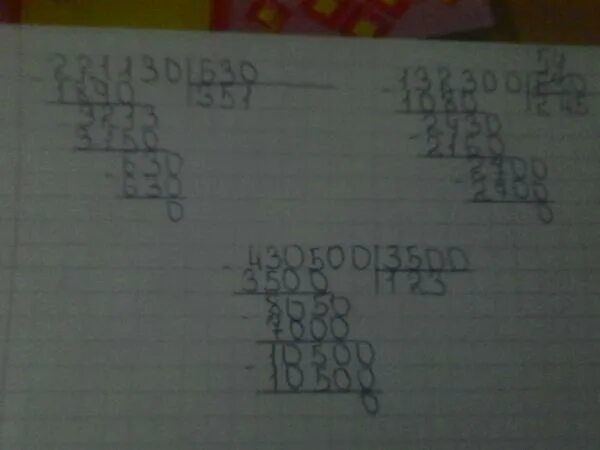 221130|630
1890 351
3233
3150
630
630
0
132300|540
1080 245
2430
2160
2700
2700
0
430500|3500
3500 123
8050
7000
10500
10500
0